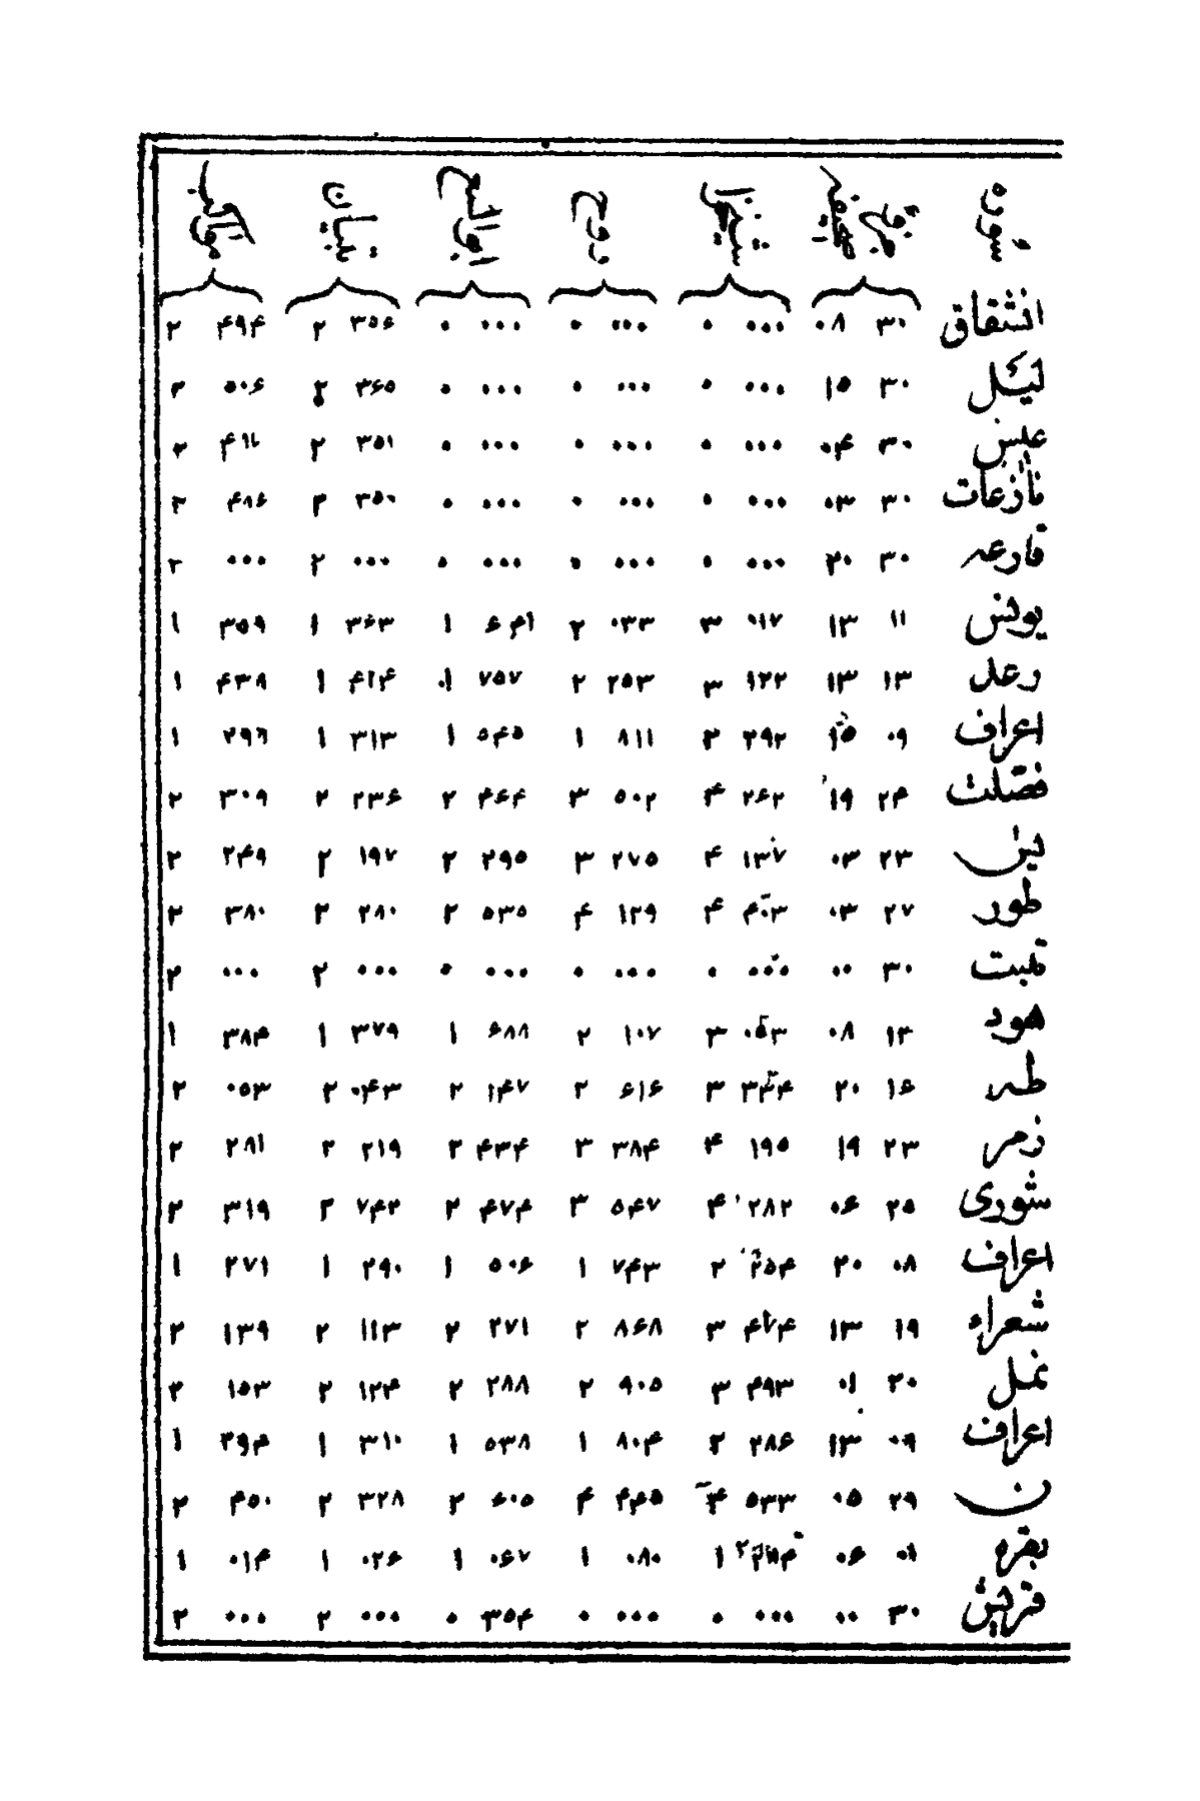 سوره
انشقاق ۳۰ ۰۸ ۰۰۰ ۰ ۰۰۰ ۰ ۰۰۰ ۰ ۳۵۶ ۲ ۴۹۴ ۲
لیل ۳۰ ۱۵ ۰۰۰ ۰ ۰۰۰ ۰ ۰۰۰ ۰ ۳۶۵ ۲ ۵۰۶ ۲
عبس ۳۰ ۰۴ ۰۰۰ ۰ ۰۰۰ ۰ ۰۰۰ ۰ ۳۵۱ ۲ ۲
نازعات ۳۰ ۰۳ ۰۰۰ ۰ ۰۰۰ ۰ ۰۰۰ ۰ ۳۵۰ ۲ ۴۸۶ ۲
قارعه ۳۰ ۲۰ ۰۰۰ ۰ ۰۰۰ ۰ ۰۰۰ ۰ ۰۰۰ ۲ ۰۰۰ ۲
یونس ۱۱ ۱۳ ۰۱۷ ۳ ۰۳۳ ۲ ۱ ۳۶۳ ۱ ۳۵۹ ۱
رعد ۱۳ ۱۳ ۱۲۲ ۳ ۲۵۳ ۲ ۷۵۷ ۱ ۴۱۴ ۱ ۴۳۸ ۱
اعراف ۰۹ ۱۵ ۲۹۲ ۲ ۸۱۱ ۱ ۵۴۵ ۱ ۳۱۳ ۱ ۲۹۶ ۱
فصلت ۲۴ ۱۹ ۲۶۲ ۴ ۵۰۲ ۳ ۴۶۴ ۲ ۲۳۶ ۲ ۳۰۹ ۲
یس ۲۳ ۰۳ ۱۳۷ ۴ ۲۷۵ ۳ ۲۹۵ ۲ ۱۹۷ ۲ ۲۴۹ ۲
طور ۲۷ ۰۳ ۴۰۳ ۴ ۱۲۹ ۴ ۵۳۵ ۲ ۲۸۰ ۲ ۳۸۰ ۲
تبت ۳۰ ۰۰ ۰۰۰ ۰ ۰۰۰ ۰ ۰۰۰ ۰ ۰۰۰ ۲ ۰۰۰ ۲
هود ۱۲ ۰۸ ۰۵۳ ۳ ۱۰۷ ۲ ۶۸۸ ۱ ۳۷۹ ۱ ۳۸۴ ۱
طه ۱۶ ۲۰ ۳۴۴ ۳ ۶۱۶ ۲ ۱۴۷ ۲ ۰۴۳ ۲ ۰۵۳ ۲
زمر ۲۳ ۱۹ ۱۹۵ ۴ ۳۸۴ ۳ ۴۳۴ ۲ ۲۱۹ ۲ ۲۸۱ ۲
شوری ۲۵ ۰۶ ۲۸۲ ۴ ۵۴۷ ۳ ۴۷۴ ۲ ۷۴۲ ۲ ۳۱۹ ۲
اعراف ۰۸ ۲۰ ۲۵۴ ۲ ۷۴۳ ۱ ۵۰۶ ۱ ۲۹۰ ۱ ۲۷۱ ۱
شعراء ۱۹ ۱۳ ۴۷۴ ۳ ۸۶۸ ۲ ۲۷۱ ۲ ۱۱۳ ۲ ۱۳۹ ۲
نمل ۲۰ ۰۱ ۴۹۳ ۳ ۹۰۵ ۲ ۲۸۸ ۲ ۱۲۴ ۲ ۱۵۳ ۲
اعراف ۰۹ ۱۳ ۲۸۶ ۲ ۸۰۴ ۱ ۵۳۸ ۱ ۳۱۰ ۱ ۲۹۴ ۱
ن ۲۹ ۰۵ ۵۳۳ ۴ ۴۴۵ ۴ ۶۰۵ ۲ ۳۲۸ ۲ ۴۵۰ ۲
بقره ۰۱ ۰۶ ۱ ۰۸۰ ۱ ۰۶۷ ۱ ۰۲۶ ۱ ۰۱۴ ۱
قریش ۳۰ ۰۰ ۰۰۰ ۰ ۰۰۰ ۰ ۳۵۴ ۰ ۰۰۰ ۲ ۰۰۰ ۲